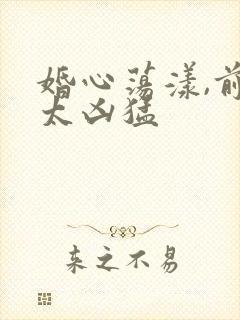 婚心荡漾,前
太凶猛
来之不易